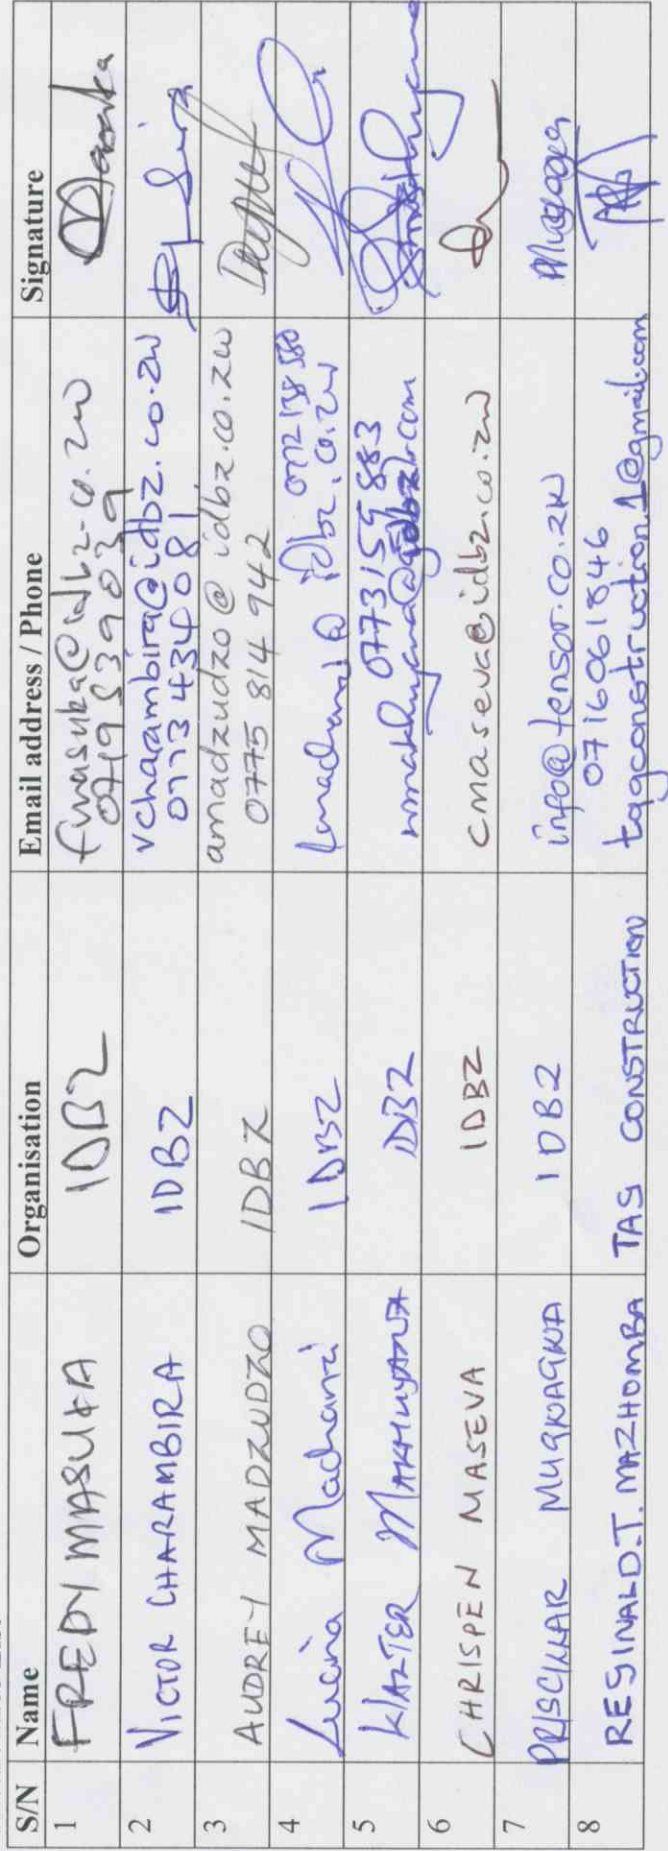 S/N Name Organisation Email address / Phone Signature
1 FREDY MASUKA IDBZ fmasuka@idbz.co.zw
0719539039
2 VICTOR CHARAMBIRA IDBZ vcharambira@idbz.co.zw
0773434081
3 AUDREY MADZUDZO IDBZ amadzudzo@idbz.co.zw
0775 814 942
4 Lucina Madhani IDBZ 0772 138 580
@idbz.co.zw
5 MAKHUYANA IDBZ 0773159883
6 CHRISPEN MASEVA IDBZ cmaseva@idbz.co.zw
7 PRISCILLAR MUGWAGWA IDBZ info@tensor.co.zw
0716061846
8 REGINALD.T. MAZHOMBA TAG CONSTRUCTION tagconstruction.1@gmail.com